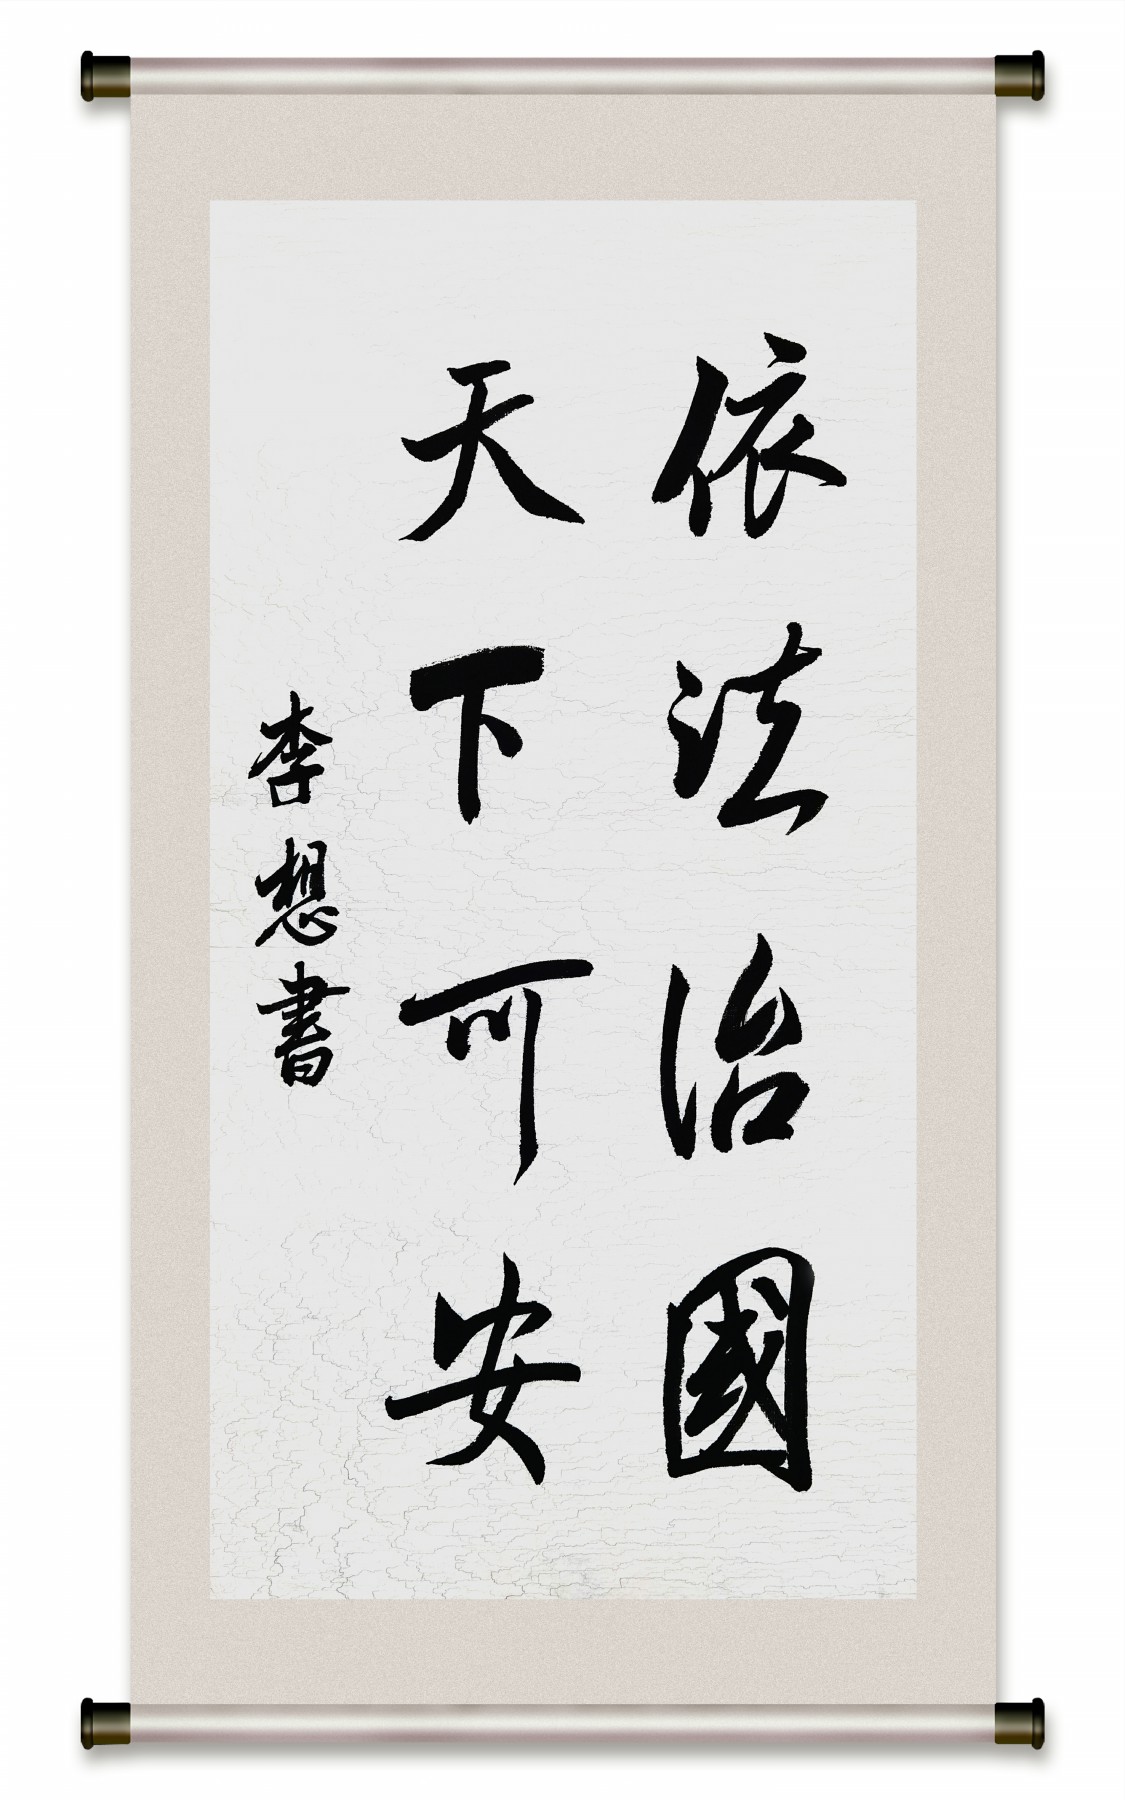 依法治國
天下可安
李想書